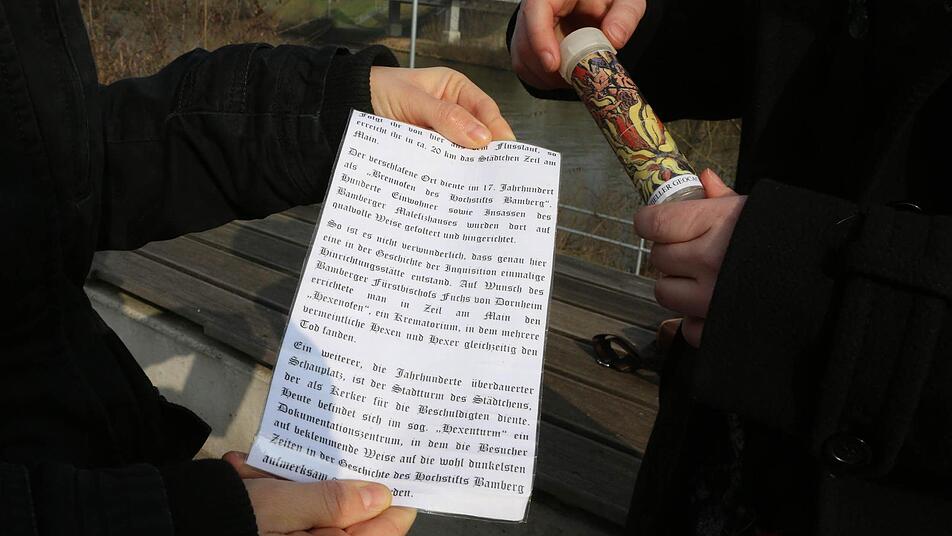 Folgt ihr von hier aus dem Flusslauf, so
erreicht ihr in ca. 20 km das Städtchen Zeil am
Main.
Der verschlafene Ort diente im 17. Jahrhundert
als „Brennofen des Hochstifts Bamberg“.
Hunderte Einwohner sowie Insassen des
Bamberger Malefizhauses wurden dort auf
qualvolle Weise gefoltert und hingerichtet.
So ist es nicht verwunderlich, dass genau hier
eine in der Geschichte der Inquisition einmalige
Hinrichtungsstätte entstand. Auf Wunsch des
Bamberger Fürstbischofs Fuchs von Dornheim
errichtete man in Zeil am Main den
„Hexenofen“, ein Krematorium, in dem mehrere
vermeintliche Hexen und Hexer gleichzeitig den
Tod fanden.
Ein weiterer, die Jahrhunderte überdauerter
Schauplatz, ist der Stadtturm des Städtchens,
der als Kerker für die Beschuldigten diente.
Heute befindet sich im sog. „Hexenturm“ ein
Dokumentationszentrum, in dem die Besucher
auf beklemmende Weise auf die wohl dunkelsten
Zeiten in der Geschichte des Hochstifts Bamberg
aufmerksam